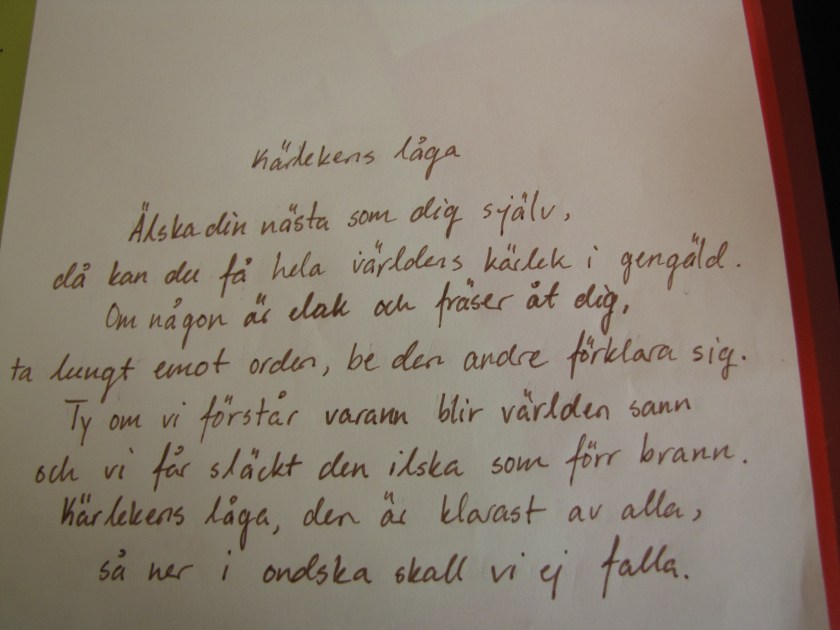 Kärlekens låga
Älska din nästa som dig själv,
då kan du få hela världens kärlek i gengäld.
Om någon är elak och fräser åt dig,
ta lungt emot orden, be den andre förklara sig.
Ty om vi förstår varann blir världen sann
och vi får släckt den ilska som förr brann.
Kärlekens låga, den är klarast av alla,
så ner i ondska skall vi ej falla.